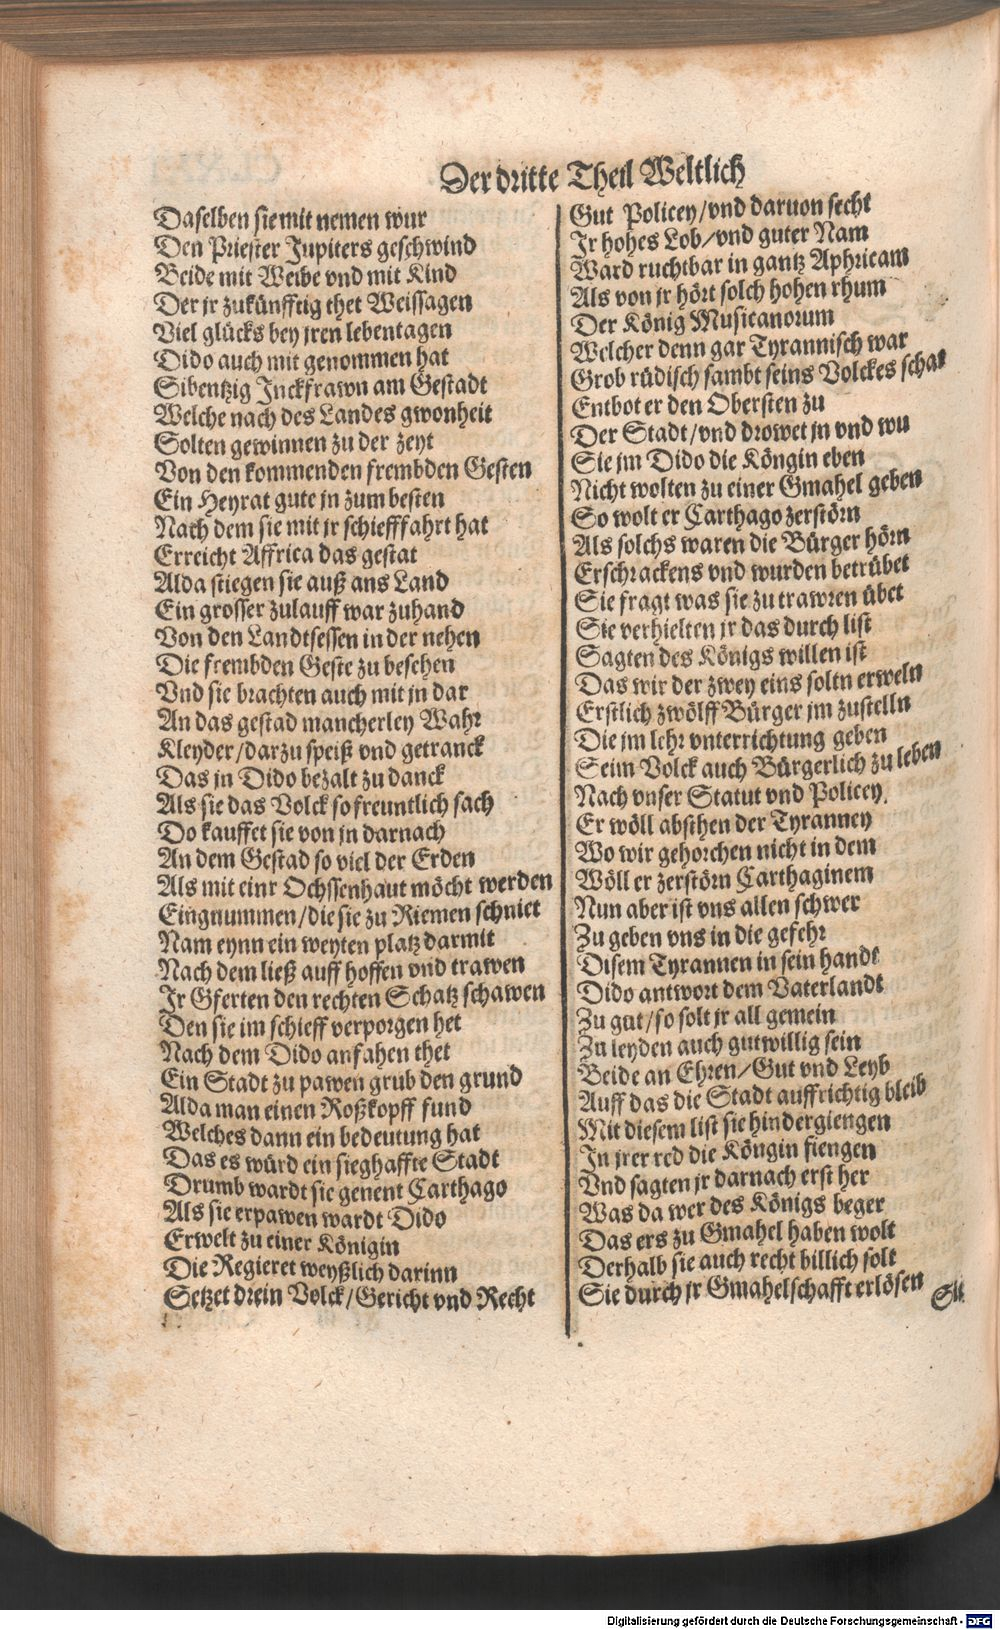 Der dritte Theil Weltlich
Daselben sie mit nemen wur
Den Priester Jupiters geschwind
Beide mit Weibe vnd mit Kind
Der jr zukünfftig thet Weissagen
Viel glücks bey jren lebentagen
Dido auch mit genommen hat
Sibentzig Junckfrawn am Gestadt
Welche nach des Landes gwonheit
Solten gewinnen zu der zeyt
Von den kommenden frembden Gesten
Ein Heyrat gute jn zum besten
Nach dem sie mit jr schieffahrt hat
Erreicht Affrica das gestat
Alda stiegen sie auß ans Land
Ein grosser zulauff war zuhand
Von den Landtsessen in der nehen
Die frembden Geste zu besehen
Vnd sie brachten auch mit jn dar
An das gestad mancherley Wahr
Kleyder/darzu speiß vnd getranck
Das jn Dido bezalt zu danck
Als sie das Volck so freuntlich sach
Do kauffet sie von jn darnach
An dem Gestad so viel der Erden
Als mit einr Ochssenhaut möcht werden
Eingnummen/die sie zu Riemen schniet
Nam eynn ein weyten platz darmit
Nach dem ließ auff hoffen vnd trawen
Jr Gferten den rechten Schatz schawen
Den sie im schieff verporgen het
Nach dem Dido anfahen thet
Ein Stadt zu pawen grub den grund
Alda man einen Roßkopff fund
Welches dann ein bedeutung hat
Das es würd ein sieghaffte Stadt
Drumb wardt sie genent Carthago
Als sie erpawen wardt Dido
Erwelt zu einer Königin
Die Regieret weyßlich darinn
Setzet drein Volck/Gericht vnd Recht
Gut Policey/vnd daruon secht
Jr hohes Lob/vnd guter Nam
Ward ruchtbar in gantz Aphricam
Als von jr hört solch hohen rhum
Der König Musitanorum
Welcher denn gar Tyrannisch war
Grob rüdisch sambt seins Volckes schar
Entbot er den Obersten zu
Der Stadt/vnd drowet jn vnd wu
Sie jm Dido die Köngin eben
Nicht wolten zu einer Gmahel geben
So wolt er Carthago zerstörn
Als solchs waren die Bürger hörn
Erschrackens vnd wurden betrübet
Sie fragt was sie zu trawren übet
Sie verhielten jr das durch list
Sagten des Königs willen ist
Das wir der zwey eins soltn erweln
Erstlich zwölff Bürger jm zustelln
Die jm lehr vnterrichtung geben
Seim Volck auch Bürgerlich zu leben
Nach vnser Statut vnd Policey
Er wöll absthen der Tyranney
Wo wir gehorchen nicht in dem
Wöll er zerstörn Carthaginem
Nun aber ist vns allen schwer
Zu geben vns in die gefehr
Disem Tyrannen in sein handt
Dido antwort dem Vaterlandt
Zu gut/so solt jr all gemein
Zu leyden auch gutwillig sein
Beide an Ehren/Gut vnd Leyb
Auff das die Stadt auffrichtig bleib
Mit diesem list sie hindergiengen
In jrer red die Köngin fiengen
Vnd sagten jr darnach erst her
Was da wer des Königs beger
Das ers zu Gmahel haben wolt
Derhalb sie auch recht billich solt
Sie durch jr Gmahelschafft erlösen
Digitalisierung gefördert durch die Deutsche Forschungsgemeinschaft - DFG